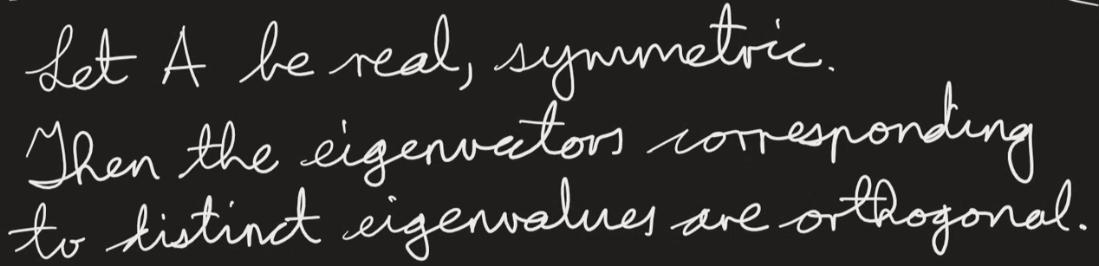 Let A be real, symmetric.
Then the eigenvectors corresponding
to distinct eigenvalues are orthogonal.